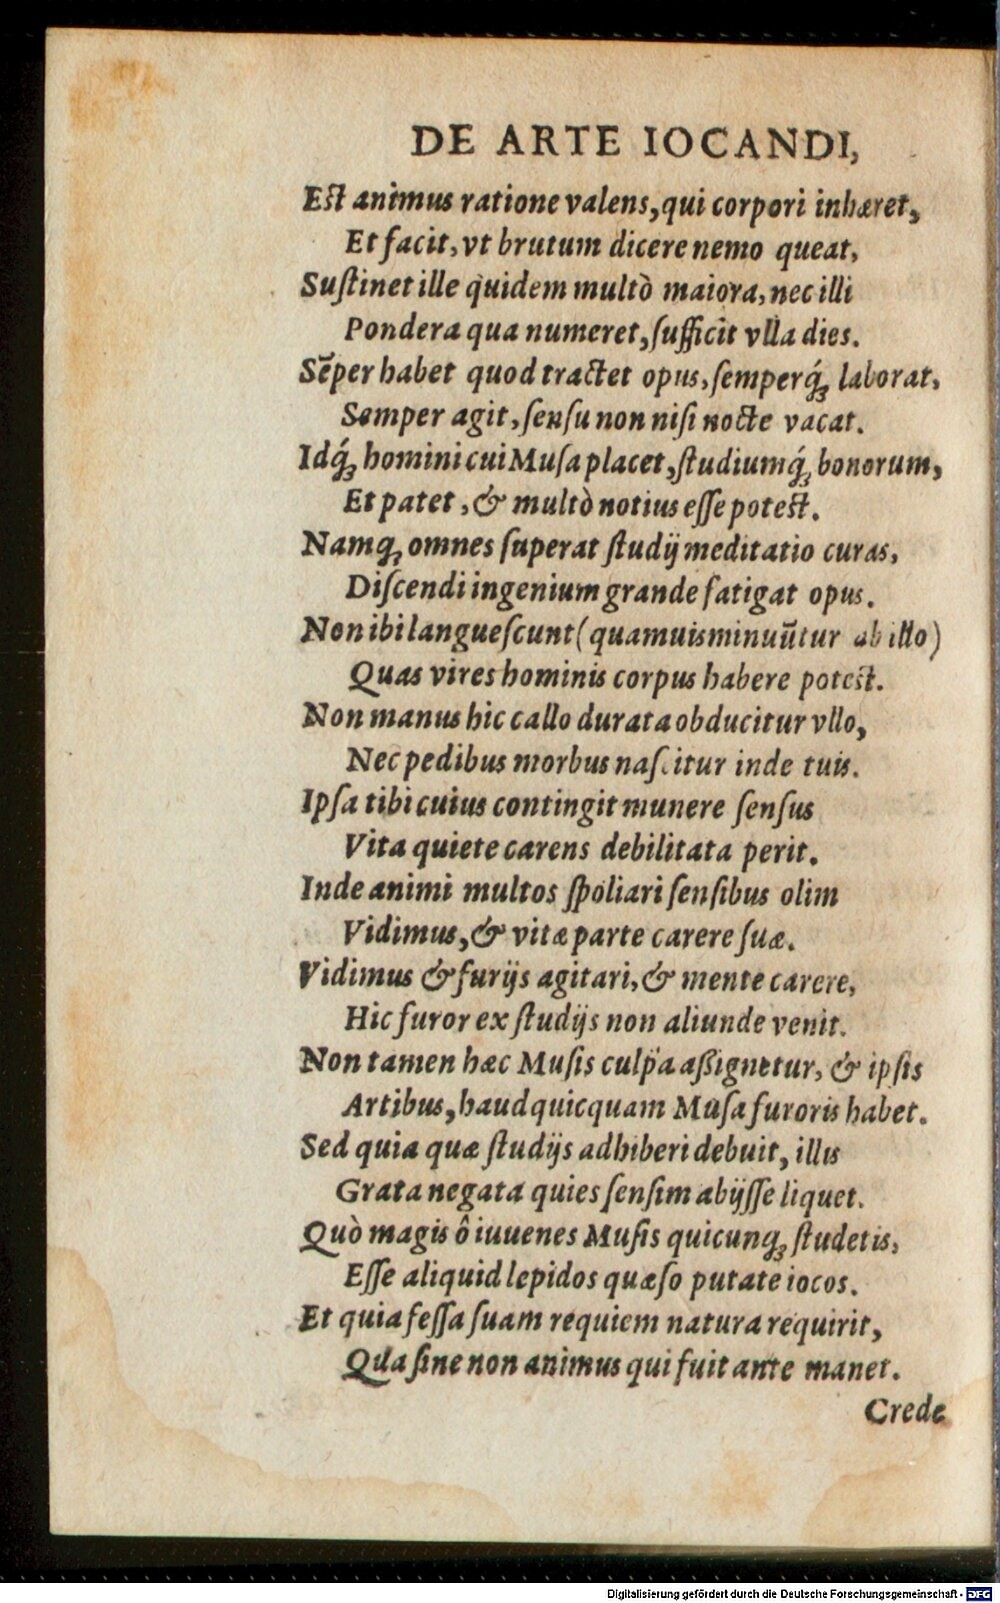 DE ARTE IOCANDI,
Est animus ratione valens, qui corpori inhæret,
Et facit, vt brutum dicere nemo queat,
Suſtinet ille quidem multò maiora, nec illi
Pondera qua numeret, ſufficit vlla dies.
Sẽper habet quod tractet opus, ſemperq́ꝫ laborat,
Semper agit, ſenſu non niſi nocte vacat.
Idq́ꝫ homini cui Muſa placet, ſtudiumq́ꝫ bonorum,
Et patet, & multò notius eſſe poteſt.
Namqꝫ omnes ſuperat ſtudij meditatio curas,
Diſcendi ingenium grande fatigat opus.
Non ibi langueſcunt (quamuis minuũtur ab illo)
Quas vires hominis corpus habere poteſt.
Non manus hic callo durata obducitur vllo,
Nec pedibus morbus naſcitur inde tuis.
Ipſa tibi cuius contingit munere ſenſus
Vita quiete carens debilitata perit.
Inde animi multos ſpoliari ſenſibus olim
Vidimus, & vitæ parte carere ſuæ.
Vidimus & furijs agitari, & mente carere,
Hic furor ex ſtudijs non aliunde venit.
Non tamen hæc Muſis culpa aßignetur, & ipſis
Artibus, haud quicquam Muſa furoris habet.
Sed quia quæ ſtudijs adhiberi debuit, illis
Grata negata quies ſenſim abijſſe liquet.
Quò magis ô iuuenes Muſis quicunqꝫ ſtudetis,
Eſſe aliquid lepidos quæſo putate iocos.
Et quia feſſa ſuam requiem natura requirit,
Qua ſine non animus qui fuit ante manet.
Crede
Digitalisierung gefördert durch die Deutsche Forschungsgemeinschaft - DFG